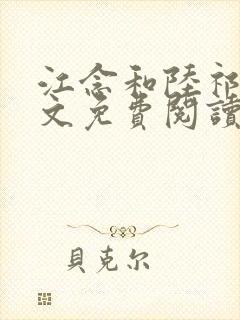 江念和陸祁
文免費閱讀
貝克尔